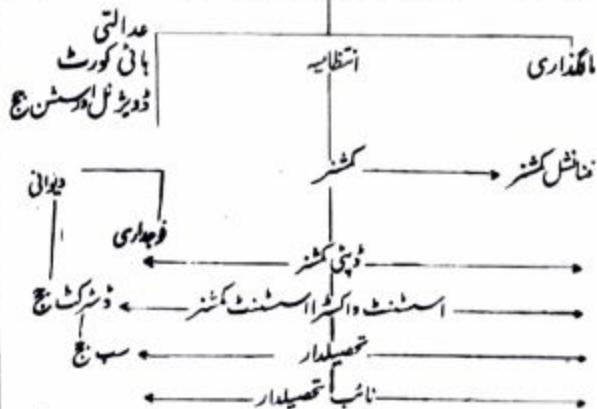 مالگذاری
انتظامیہ
عدالتی
ہائی کورٹ
ڈویژنل اور سشن جج
فنانشل کمشنر
کمشنر
دیوانی
فوجداری
ڈپٹی کمشنر
اسسٹنٹ و اکسٹرا اسسٹنٹ کمشنر
ڈسٹرکٹ جج
تحصیلدار
سب جج
نائب تحصیلدار